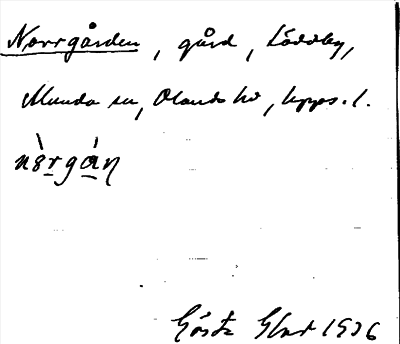 Norrgården, gård, Löddby,
Munda sn, Olands hd, Upps. l.
nò̀rgá̀ṇ
Gösta Glad 1936